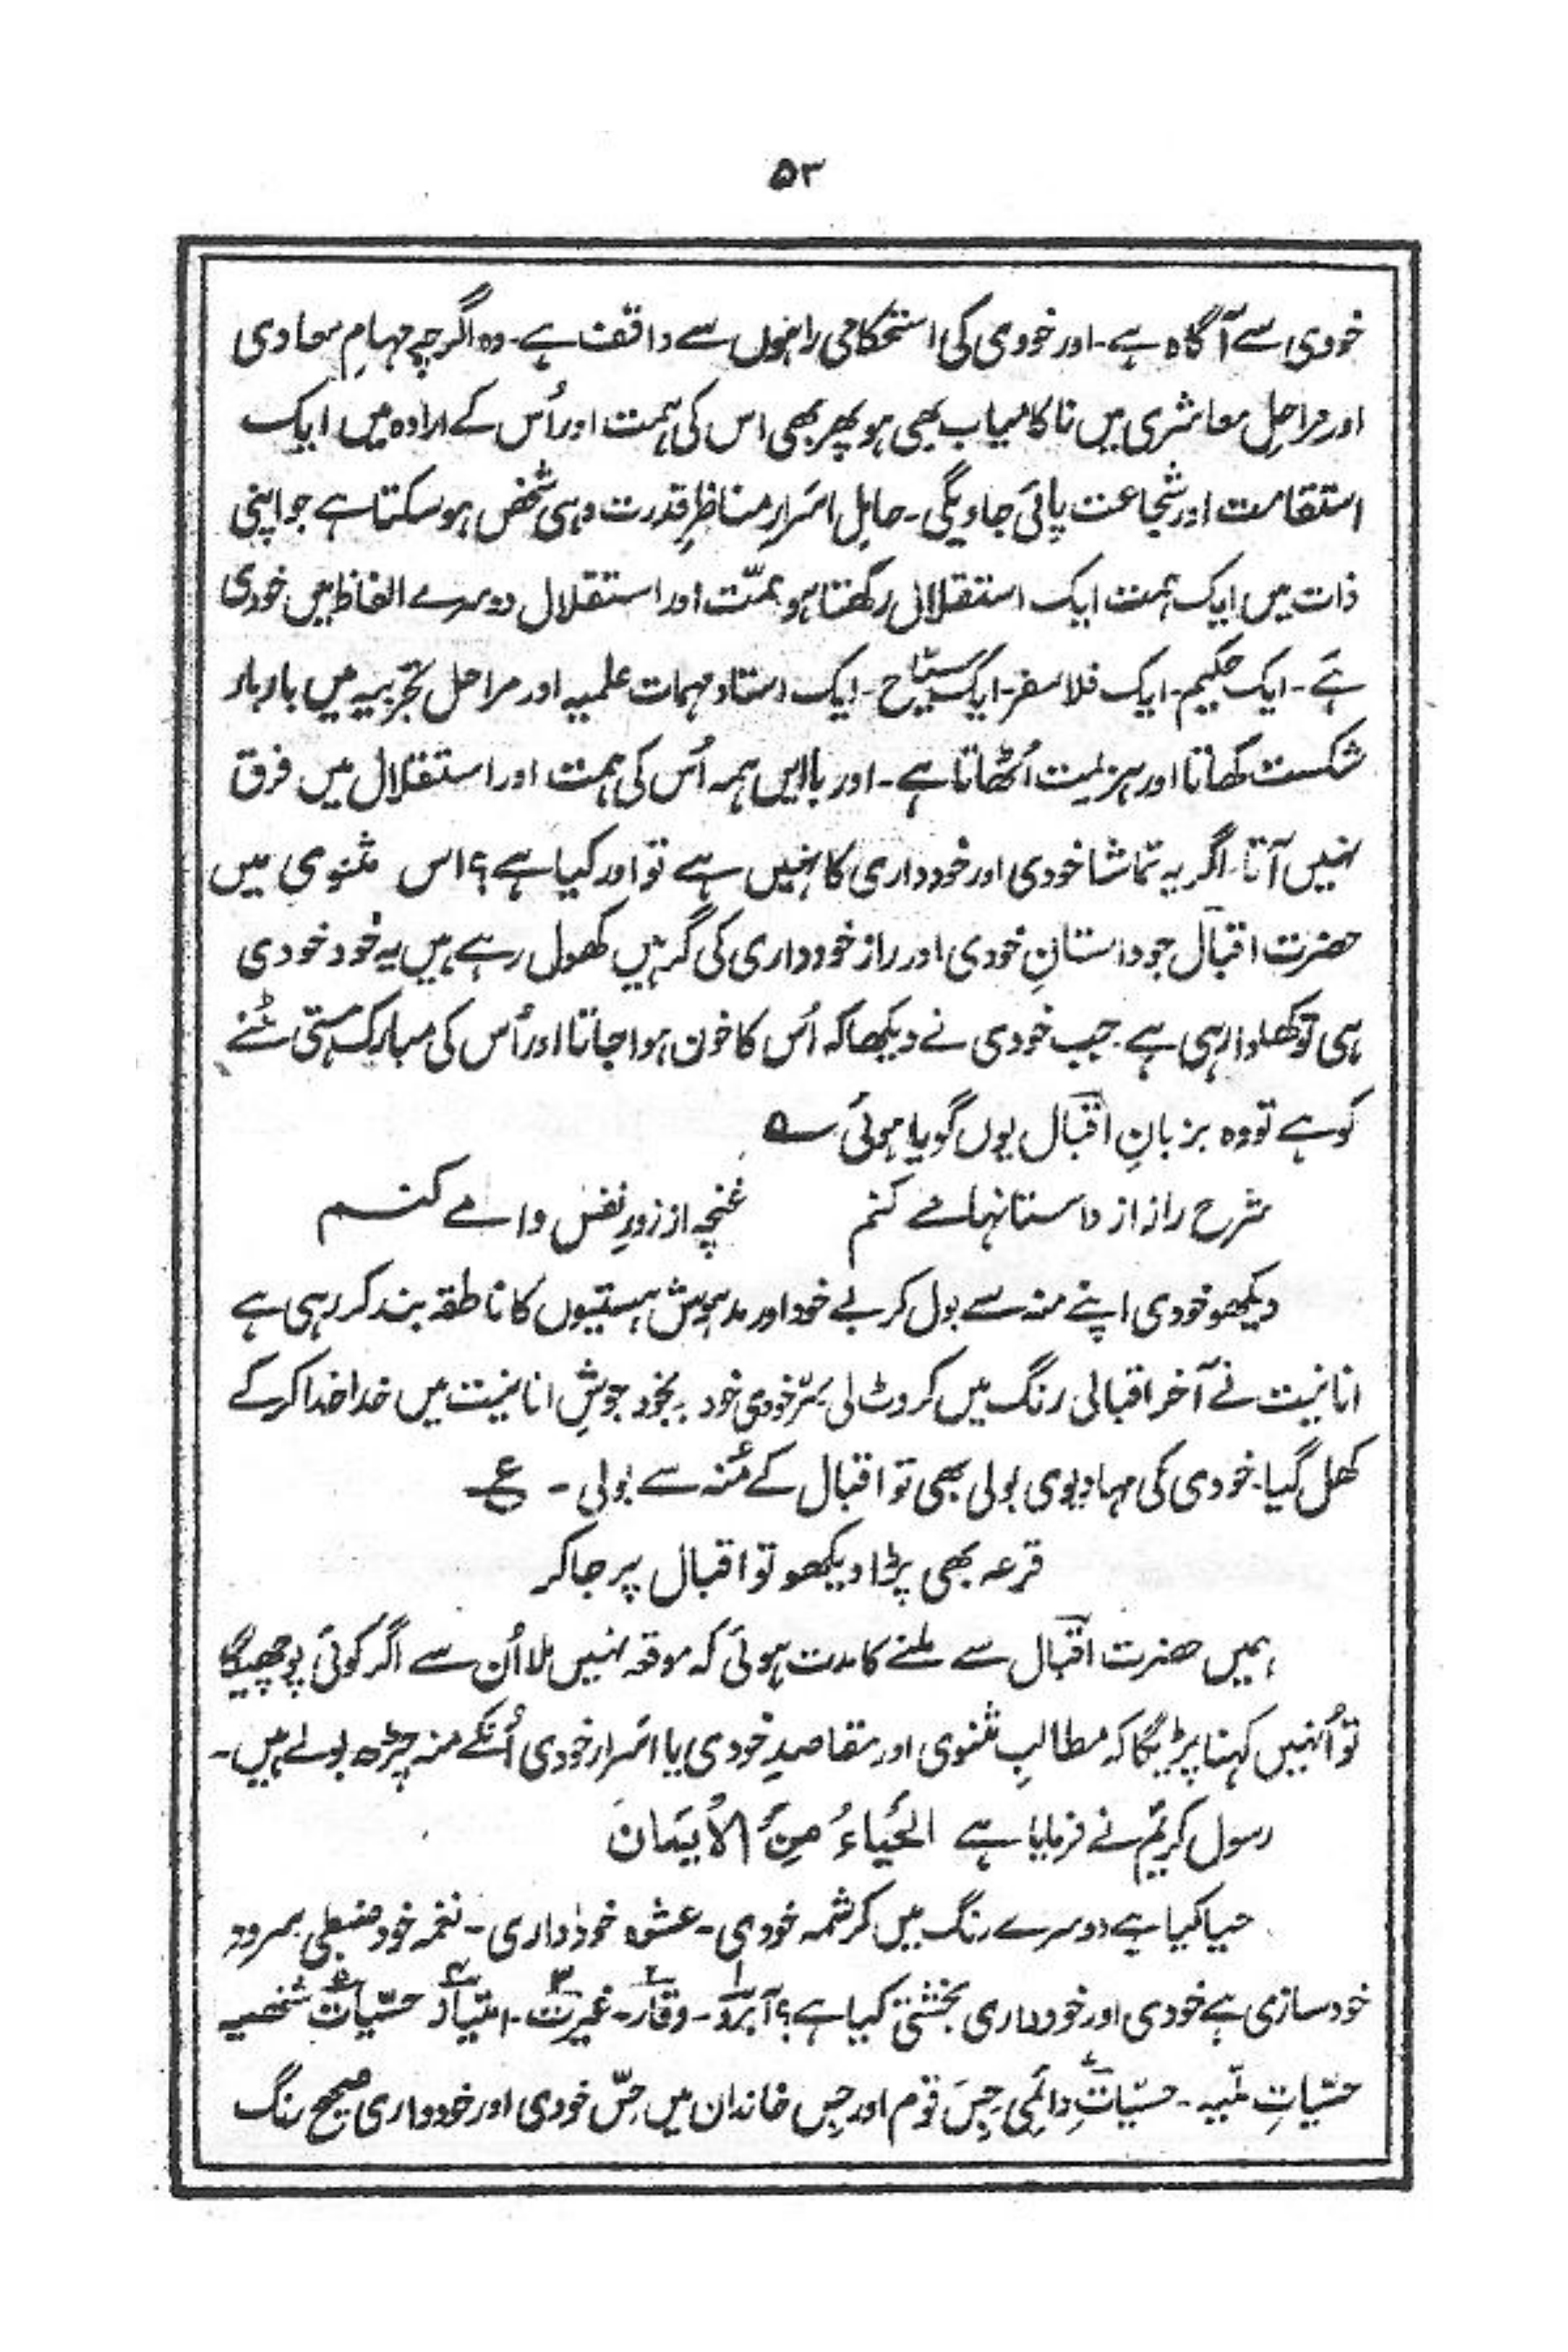 ۵۳
خودی سے آگاہ ہے۔ اور خودی کی استحکامی راہوں سے واقف ہے۔ وہ اگرچہ مہامِ معادی
اور مراحلِ معاشری میں ناکامیاب بھی ہو پھر بھی اس کی ہمت اور اُس کے ارادہ میں ایک
استقامت اور شجاعت پائی جاویگی۔ حاملِ اسرارِ مناظرِ قدرت وہی شخص ہو سکتا ہے جو اپنی
ذات میں ایک ہمت ایک استقلال رکھتا ہو ہمّت اور استقلال دوسرے الفاظ میں خودی
ہے۔ ایک حکیم۔ ایک فلاسفر۔ ایک سیّاح۔ ایک استاد مہمات علمیہ اور مراحل تجربیہ میں بار بار
شکست کھاتا اور ہزیمت اُٹھاتا ہے۔ اور باایں ہمہ اُس کی ہمت اور استقلال میں فرق
نہیں آتا۔ اگر یہ تماشا خودی اور خودداری کا نہیں ہے تو اور کیا ہے؟ اس مثنوی میں
حضرت اقبال جو داستانِ خودی اور راز خودداری کی گرہیں کھول رہے ہیں یہ خود خودی
ہی تو کھلوا رہی ہے۔ جب خودی نے دیکھا کہ اُس کا خون ہوا جاتا اور اُس کی مبارک ہستی مٹنے
کو ہے تو وہ بزبانِ اقبال یوں گویا ہوئی ؎
شرح راز از داستانہا مے کنم غنچہ از زورِ نفس وا مے کنم
دیکھو خودی اپنے منہ سے بول کر بے خود اور مدہوش ہستیوں کا ناطقہ بند کر رہی ہے
انانیت نے آخر اقبالی رنگ میں کروٹ لی سرّ خودی خود بخود جوشِ انانیت میں خدا خدا کر کے
کھل گیا۔ خودی کی مہادیوی بولی بھی تو اقبال کے مُنہ سے بولی۔ ع
قرعہ بھی پڑا دیکھو تو اقبال پر جا کر
ہمیں حضرت اقبال سے ملنے کا مدت ہوئی کہ موقعہ نہیں ملا اُن سے اگر کوئی پوچھیگا
تو اُنہیں کہنا پڑیگا کہ مطالبِ مثنوی اور مقاصدِ خودی یا اسرار خودی اُنکے منہ چڑھ بولے ہیں۔
رسول کریمؐ نے فرمایا ہے الحَیاءُ مِنَ الْاِیمَانَ
حیا کیا ہے دوسرے رنگ میں کرشمہ خودی۔ عشوہ خودداری۔ نغمہ خود ضبطی سرود
خود سازی ہے خودی اور خودداری بخشتی کیا ہے؟ آبرو۔ وقار۔ غیرت۔ امتیاز حسّیات شخصیہ
حسّیاتِ ملّیہ۔ حسّیاتِ دائمی جس قوم اور جس خاندان میں حِسّ خودی اور خودداری صحیح رنگ